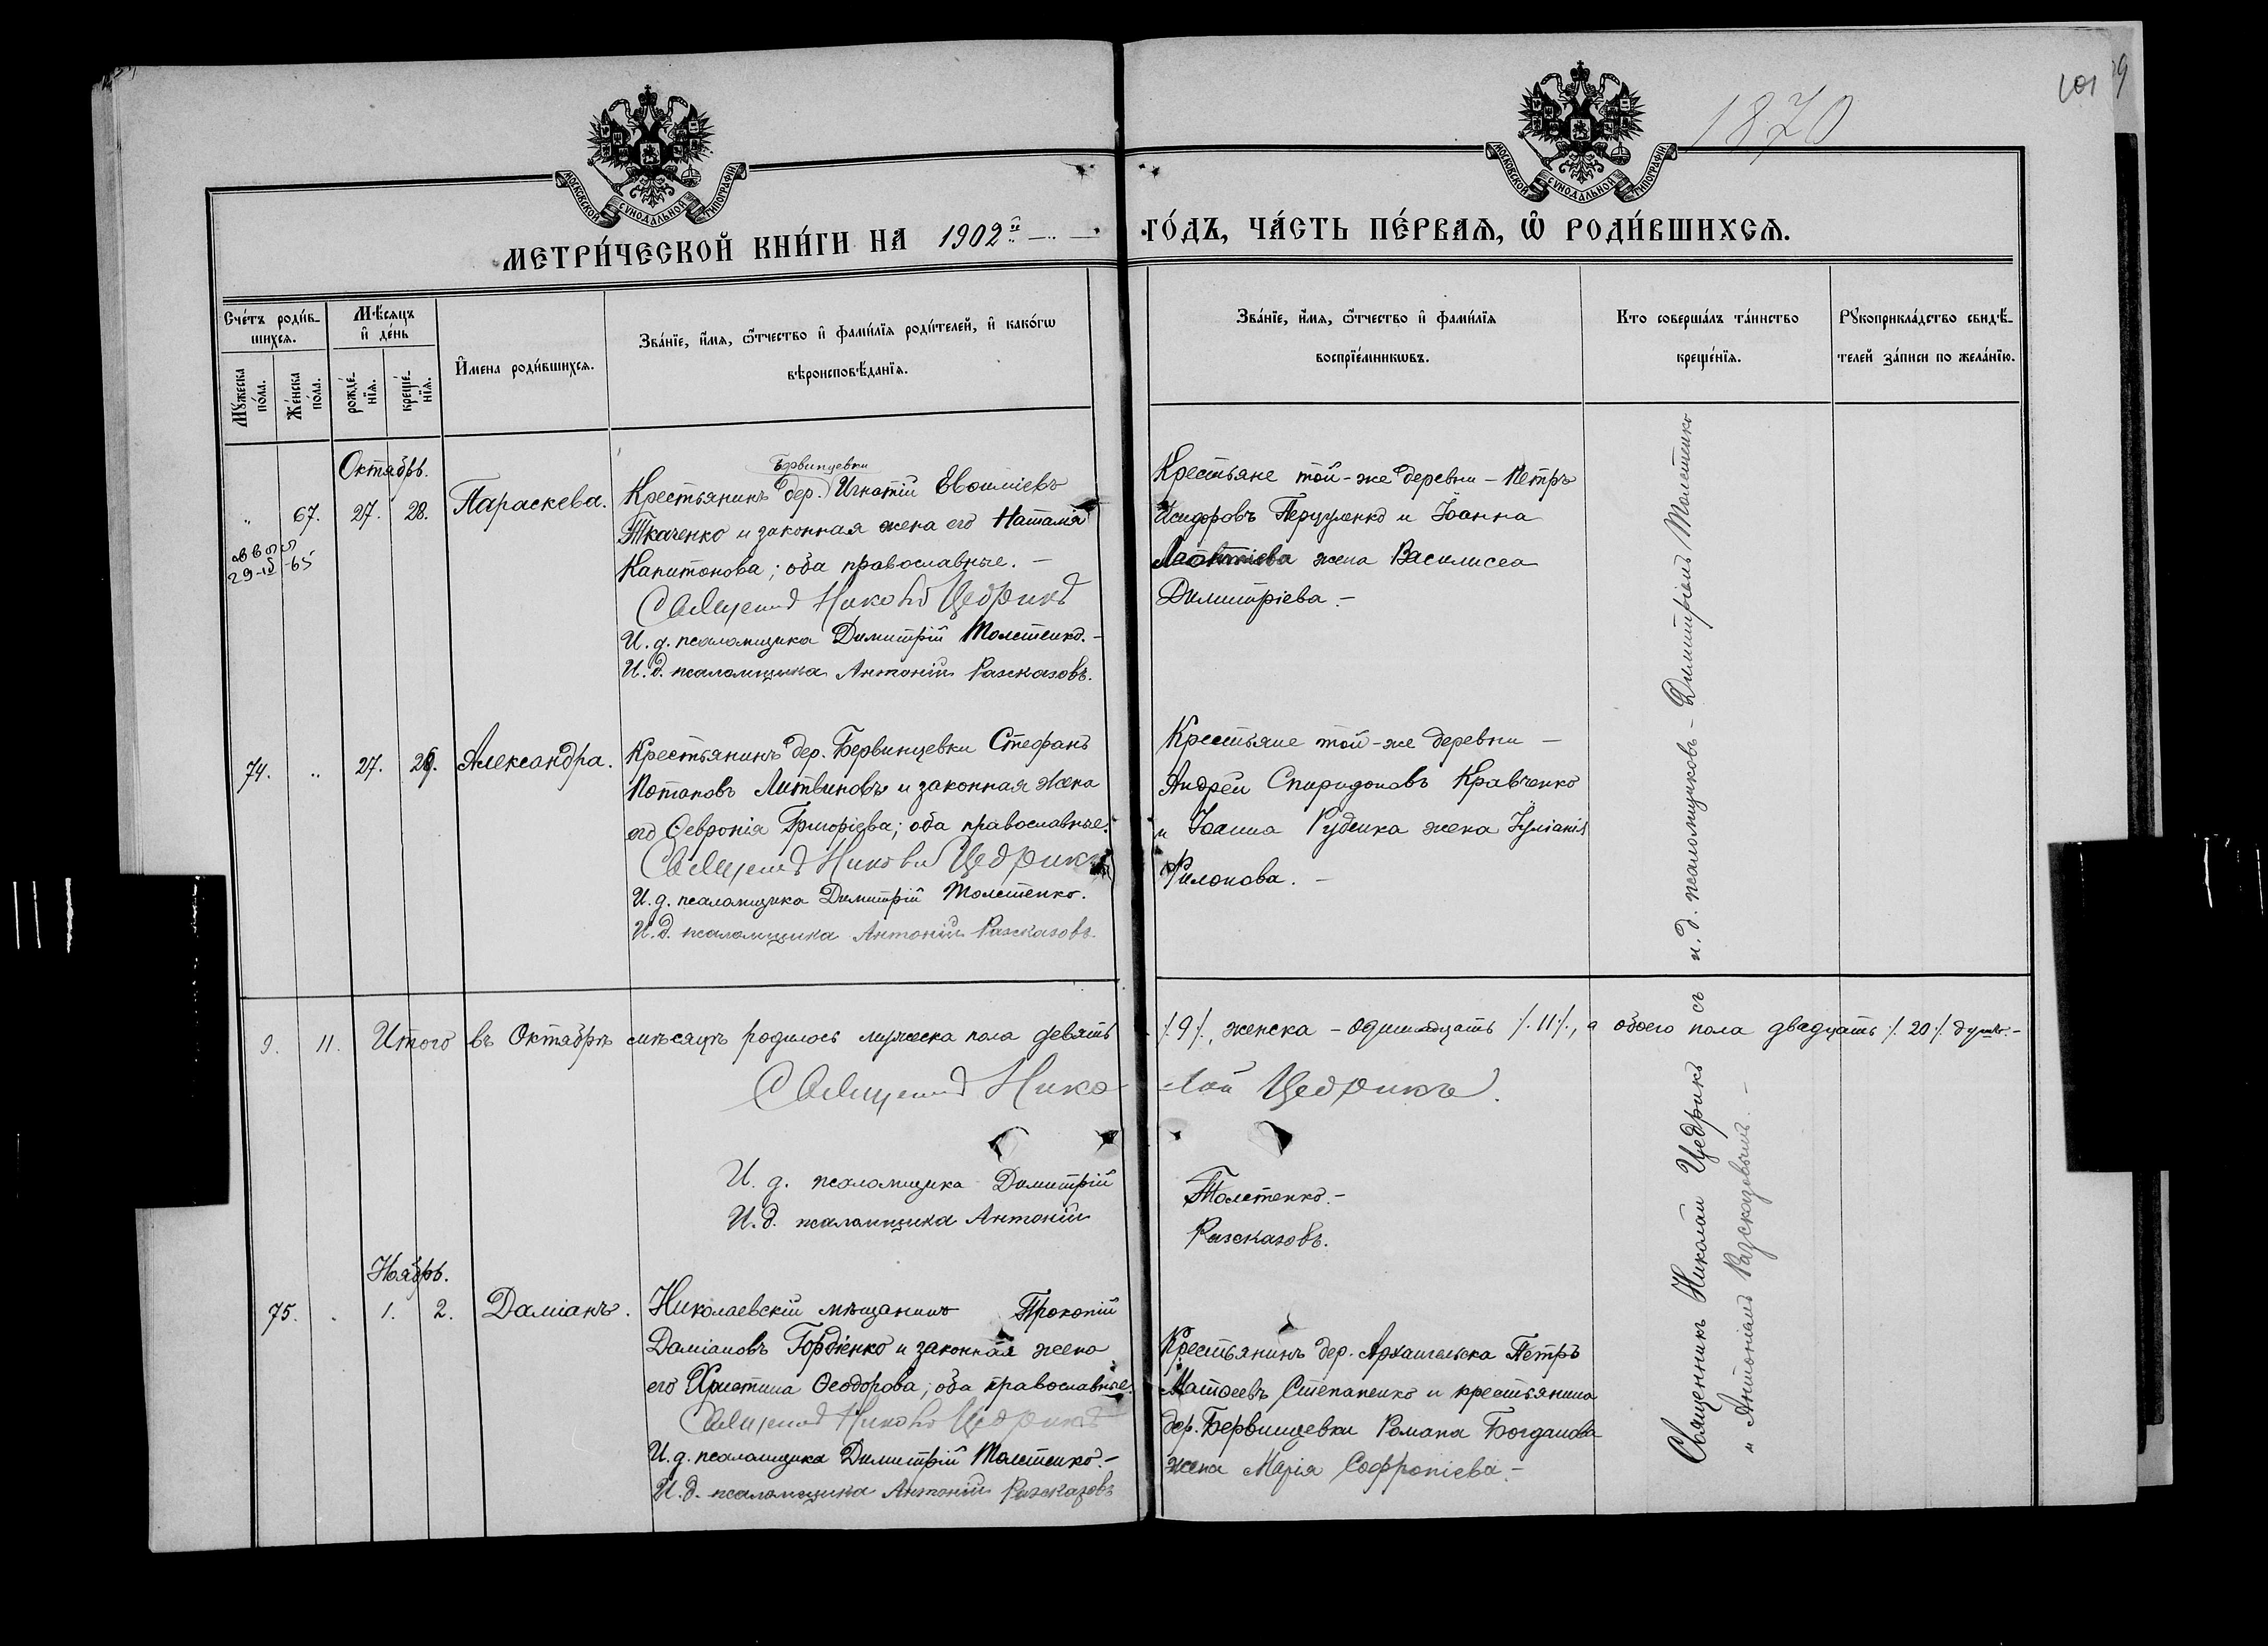 1870
101
МОСКОВСКОЙ СѴНОДАЛЬНОЙ ТИПОГРАФІИ
МОСКОВСКОЙ СѴНОДАЛЬНОЙ ТИПОГРАФІИ
МЕТРИ́ЧЕСКОЙ КНИ́ГИ НА 1902й ГО́ДЪ, ЧА́СТЬ ПЕ́РВАЯ, Ѡ҆ РОДИ́ВШИХСЯ.
Сче́тъ роди́в-
шихся.
Мꙋ́жеска по́ла.
Же́нска по́ла.
Мѣ́сяцъ
и҆ де́нь
рожде́-
нїя.
креще́-
нїя.
И҆мена роди́вшихся.
Зва́нїе, и҆́мя, ѻ҆́тчество и҆ фами́лїя роди́телей, и҆ како́гѡ
вѣроисповѣ́данїя.
Зва́нїе, и҆́мя, ѻ҆́тчество и҆ фами́лїя
воспрїе́мникѡвъ.
Кто соверша́лъ та́инство
креще́нїя.
Рꙋкоприкла́дство свидѣ́-
телей за́писи по жела́нїю.
Октябрь.
„ 67. 27. 28. Параскева.
Бервинцевки
Крестьянинъ дер. Игнатій Евѳиміевъ
Ткаченко и законная жена его Наталія
Капитонова; оба православные. –
Священникъ Николай Цедрикъ
И. д. псаломщика Димитрій Толстенко. –
И. д. псаломщика Антоній Разсказовъ.
Крестьяне той-же деревни – Петръ
Исидоровъ и Іоанна
Леонтіева жена Василисса
Димитріева. –
74. „ 27. 29. Александра.
Крестьянинъ дер. Бервинцевки Стефанъ
Потаповъ Литвиновъ и законная жена
его Ѳевронія Григоріева; оба православные.
Священникъ Николай Цедрикъ
И. д. псаломщика Димитрій Толстенко.
И. д. псаломщика Антоній Разсказовъ.
Крестьяне той-же деревни –
Андрей Спиридоновъ Кравченко
и Іоанна Руденка жена Іуліанія
Филонова. –
9. 11. Итого въ Октябрѣ мѣсяцѣ родилось мужеска пола девять /.9/., женска – одинадцать /.11/., а обоего пола двадцать /.20/. душъ. –
Священникъ Нико-лай Цедрикъ.
И. д. псаломщика Димитрій Толстенко. –
И. д. псаломщика Антоній Разсказовъ.
Ноябрь.
75. . 1. 2. Даміанъ.
Николаевскій мѣщанинъ Прокопій
Даміановъ Гордіенко и законная жена
его Христина Ѳеодорова; оба православные.
Священникъ Николай Цедрикъ
И. д. псаломщика Димитрій Толстенко. –
И. д. псаломщика Антоній Разсказовъ
Крестьянинъ дер. Архангельска Петръ
Матѳеевъ Степаненко и крестьянина
дер. Бервинцевки Романа Богданова
жена Марія Софроніева. –
Священникъ Николай Цедрикъ съ и. д. псаломщиковъ – Димитріемъ Толстенко
и Антоніемъ Разсказовымъ. –